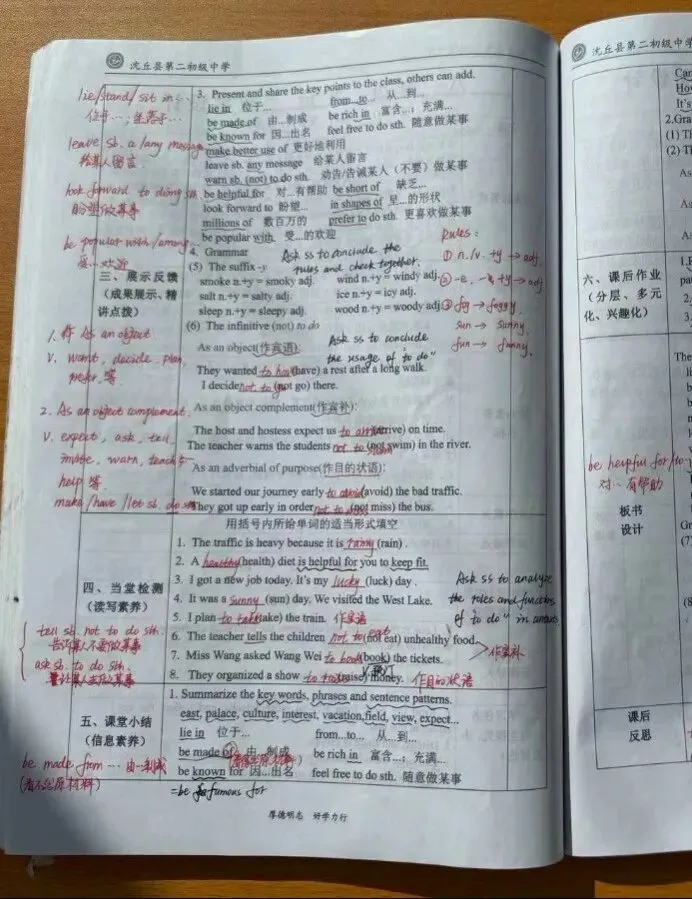 沈丘县第二初级中学
3. Present and share the key points to the class, others can add.
lie in 位于… from...to... 从…到…
be made of 由…制成 be rich in 富含…；充满…
be known for 因…出名 feel free to do sth. 随意做某事
make better use of 更好地利用
leave sb. any message 给某人留言
warn sb. (not) to do sth. 劝告/告诫某人（不要）做某事
be helpful for 对…有帮助 be short of 缺乏…
look forward to 盼望… in shapes of 呈…的形状
millions of 数百万的 prefer to do sth. 更喜欢做某事
be popular with 受…的欢迎
lie/stand/sit in …
位于…；坐落于…
leave sb. a/any message
给某人留言
look forward to doing sth
盼望做某事
be popular with/among…
受…欢迎
三、展示反馈
（成果展示、精
讲点拨）
4. Grammar
Ask ss to conclude the
rules and check together.
(5) The suffix -y
smoke n.+y = smoky adj. wind n.+y = windy adj.
salt n.+y = salty adj. ice n.+y = icy adj.
sleep n.+y = sleepy adj. wood n.+y = woody adj.
Rules:
① n./v. +y → adj.
② -e, +y → adj
③ fog → foggy
sun → sunny
fun → funny
(6) The infinitive (not) to do
Ask ss to conclude
the usage of "to do"
As an object(作宾语):
They wanted to have(have) a rest after a long walk.
I decide not to go(not go) there.
1. 作 As an object
v. want, decide, plan,
prefer, 等
As an object complement(作宾补):
The host and hostess expect us to arrive(arrive) on time.
The teacher warns the students not to swim(not swim) in the river.
2. As an object complement.
v. expect, ask, tell
invite, warn, teach
help 等
make/have/let sb. do sth
As an adverbial of purpose(作目的状语):
We started our journey early to avoid(avoid) the bad traffic.
They got up early in order not to miss(not miss) the bus.
四、当堂检测
（读写素养）
用括号内所给单词的适当形式填空
1. The traffic is heavy because it is rainy (rain) .
2. A healthy(health) diet is helpful for you to keep fit.
3. I got a new job today. It's my lucky (luck) day .
4. It was a sunny (sun) day. We visited the West Lake.
5. I plan to take(take) the train. 作宾语
6. The teacher tells the children not to eat(not eat) unhealthy food.
7. Miss Wang asked Wang Wei to book(book) the tickets.
作宾补
8. They organized a show to raise(raise) money. 作目的状语
Ask ss to analyze
the roles and functions
of "to do" in
tell sb. not to do sth.
告诉某人不要做某事
ask sb. to do sth.
让某人去做某事
五、课堂小结
（信息素养）
1. Summarize the key words, phrases and sentence patterns.
east, palace, culture, interest, vacation,field, view, expect...
lie in 位于… from...to... 从…到…
be made of 由…制成 be rich in 富含…；充满…
be known for 因…出名 feel free to do sth. 随意做某事
=be famous for
be made from … 由…制成
厚德明志 好学力行
沈丘县第二初级中学
It's
(1) Th
(2) Th
六、课后作业
（分层、多元
化、兴趣化）
be helpful for/to
对…有帮助
板书
设计
课后
反思